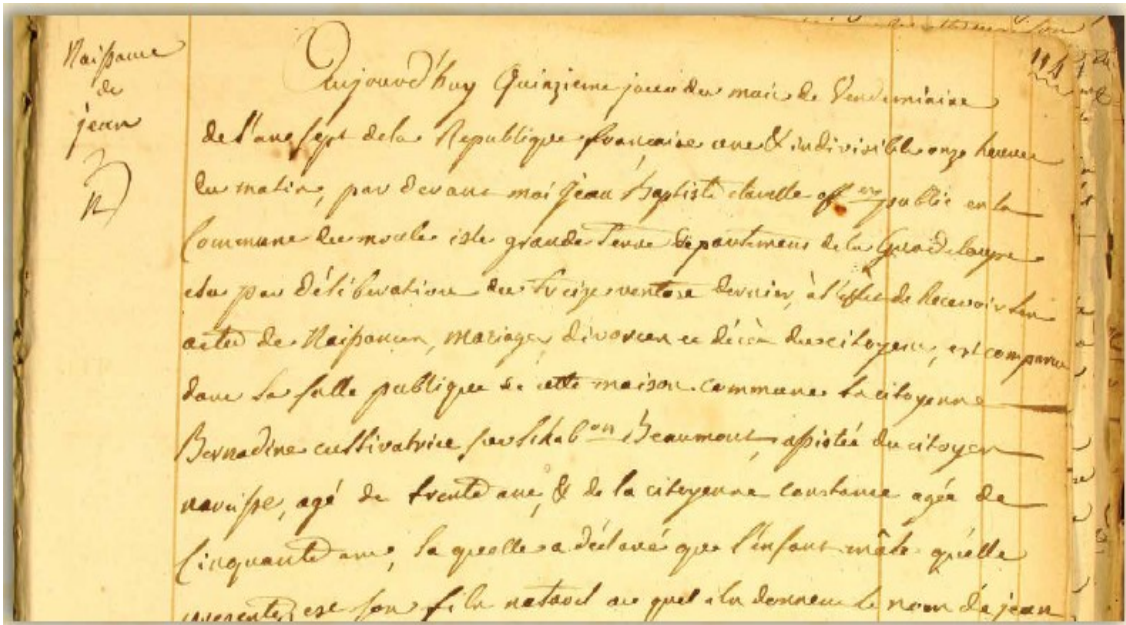 Naissance
de
jean
N
Aujourd'huy Quinzieme jour du mois de Vendemiaire
de l'an sept de la Republique française une & indivisible onze heures
du matin, par devant moi jean Baptiste off er public en la
Commune du moule isle grande Terre Departement de la Guadeloupe
elu par déliberation du treize ventose dernier, à l'effet de Recevoir les
actes de Naissances, mariages, divorces et décès des citoyens, est comparue
dans la salle publique de cette maison commune la citoyenne
Bernadine cultivatrice sur l'hab on Beaumont, assistée du citoyen
narcisse, agé de trente ans, & de la citoyenne constance agée de
Cinquante ans, la quelle a déclaré que l'enfant mâle qu'elle
presente, est son fils naturel au quel elle donne le nom de jean